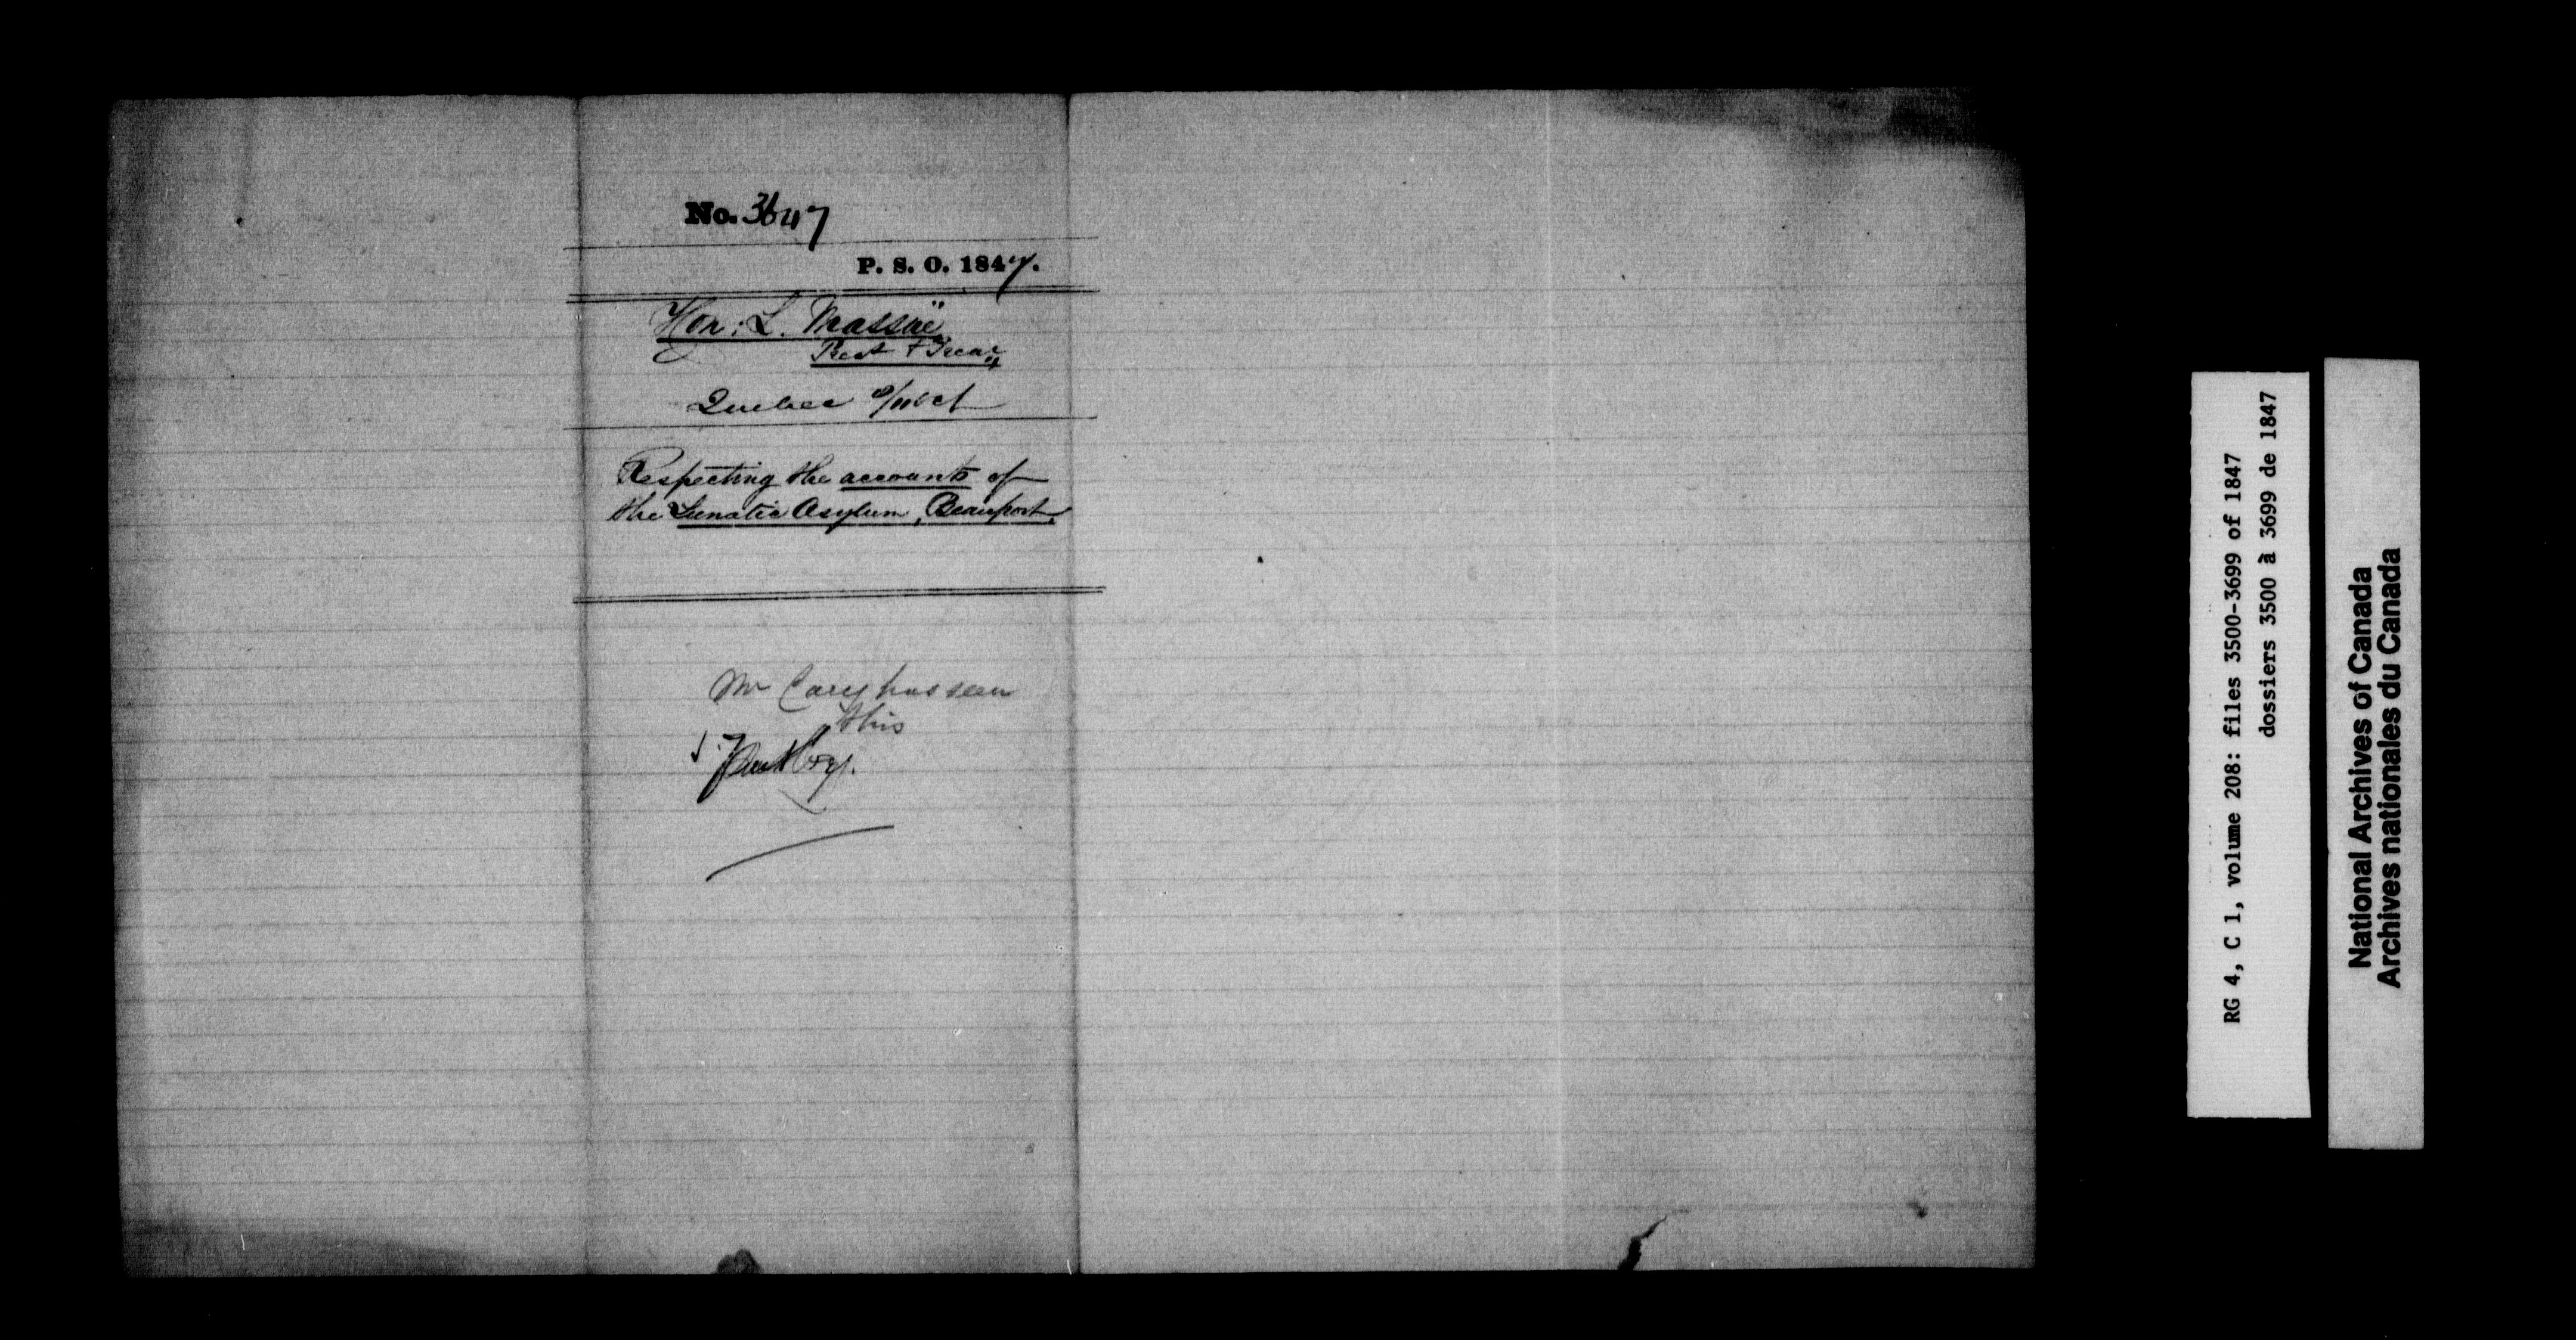 No. 3647
P. S. O. 1847.
Hon: L. Massüe
Prest & Treas
Quebec 9/ Oct
Respecting the accounts of
the Lunatic Asylum, Beauport,
Mr Cary has seen
this
RG 4, C 1, volume 208: files 3500-3699 of 1847
dossiers 3500 à 3699 de 1847
National Archives of Canada
Archives nationales du Canada